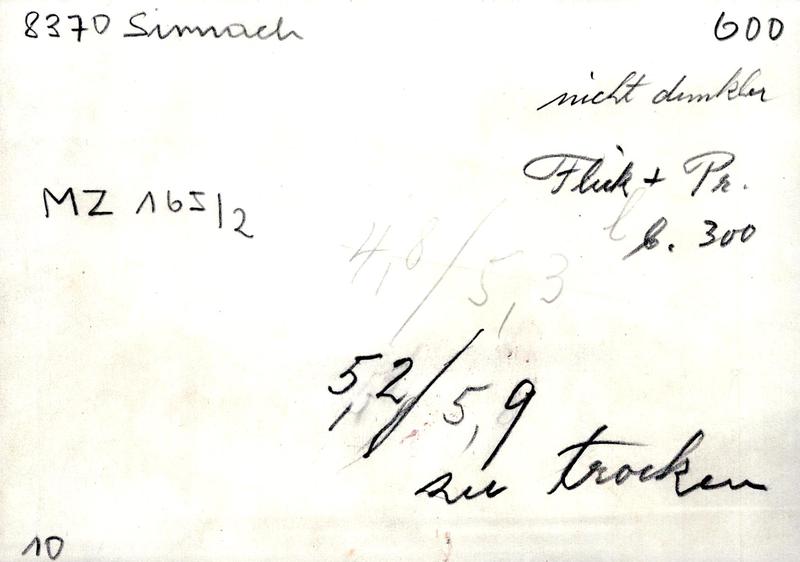 8370 Simrach
600
nicht dunkler
MZ 165/2
Flick + Pr.
b. 300
4,8/5,3
5,2/5,9
zu trocken
10